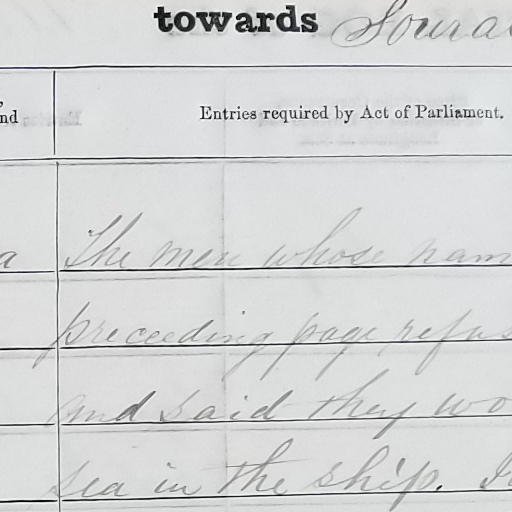 towards Soura
nd Entries required by Act of Parliament.
a The men whose nam
preceeding page refus
and said they wo
sea in the ship. I